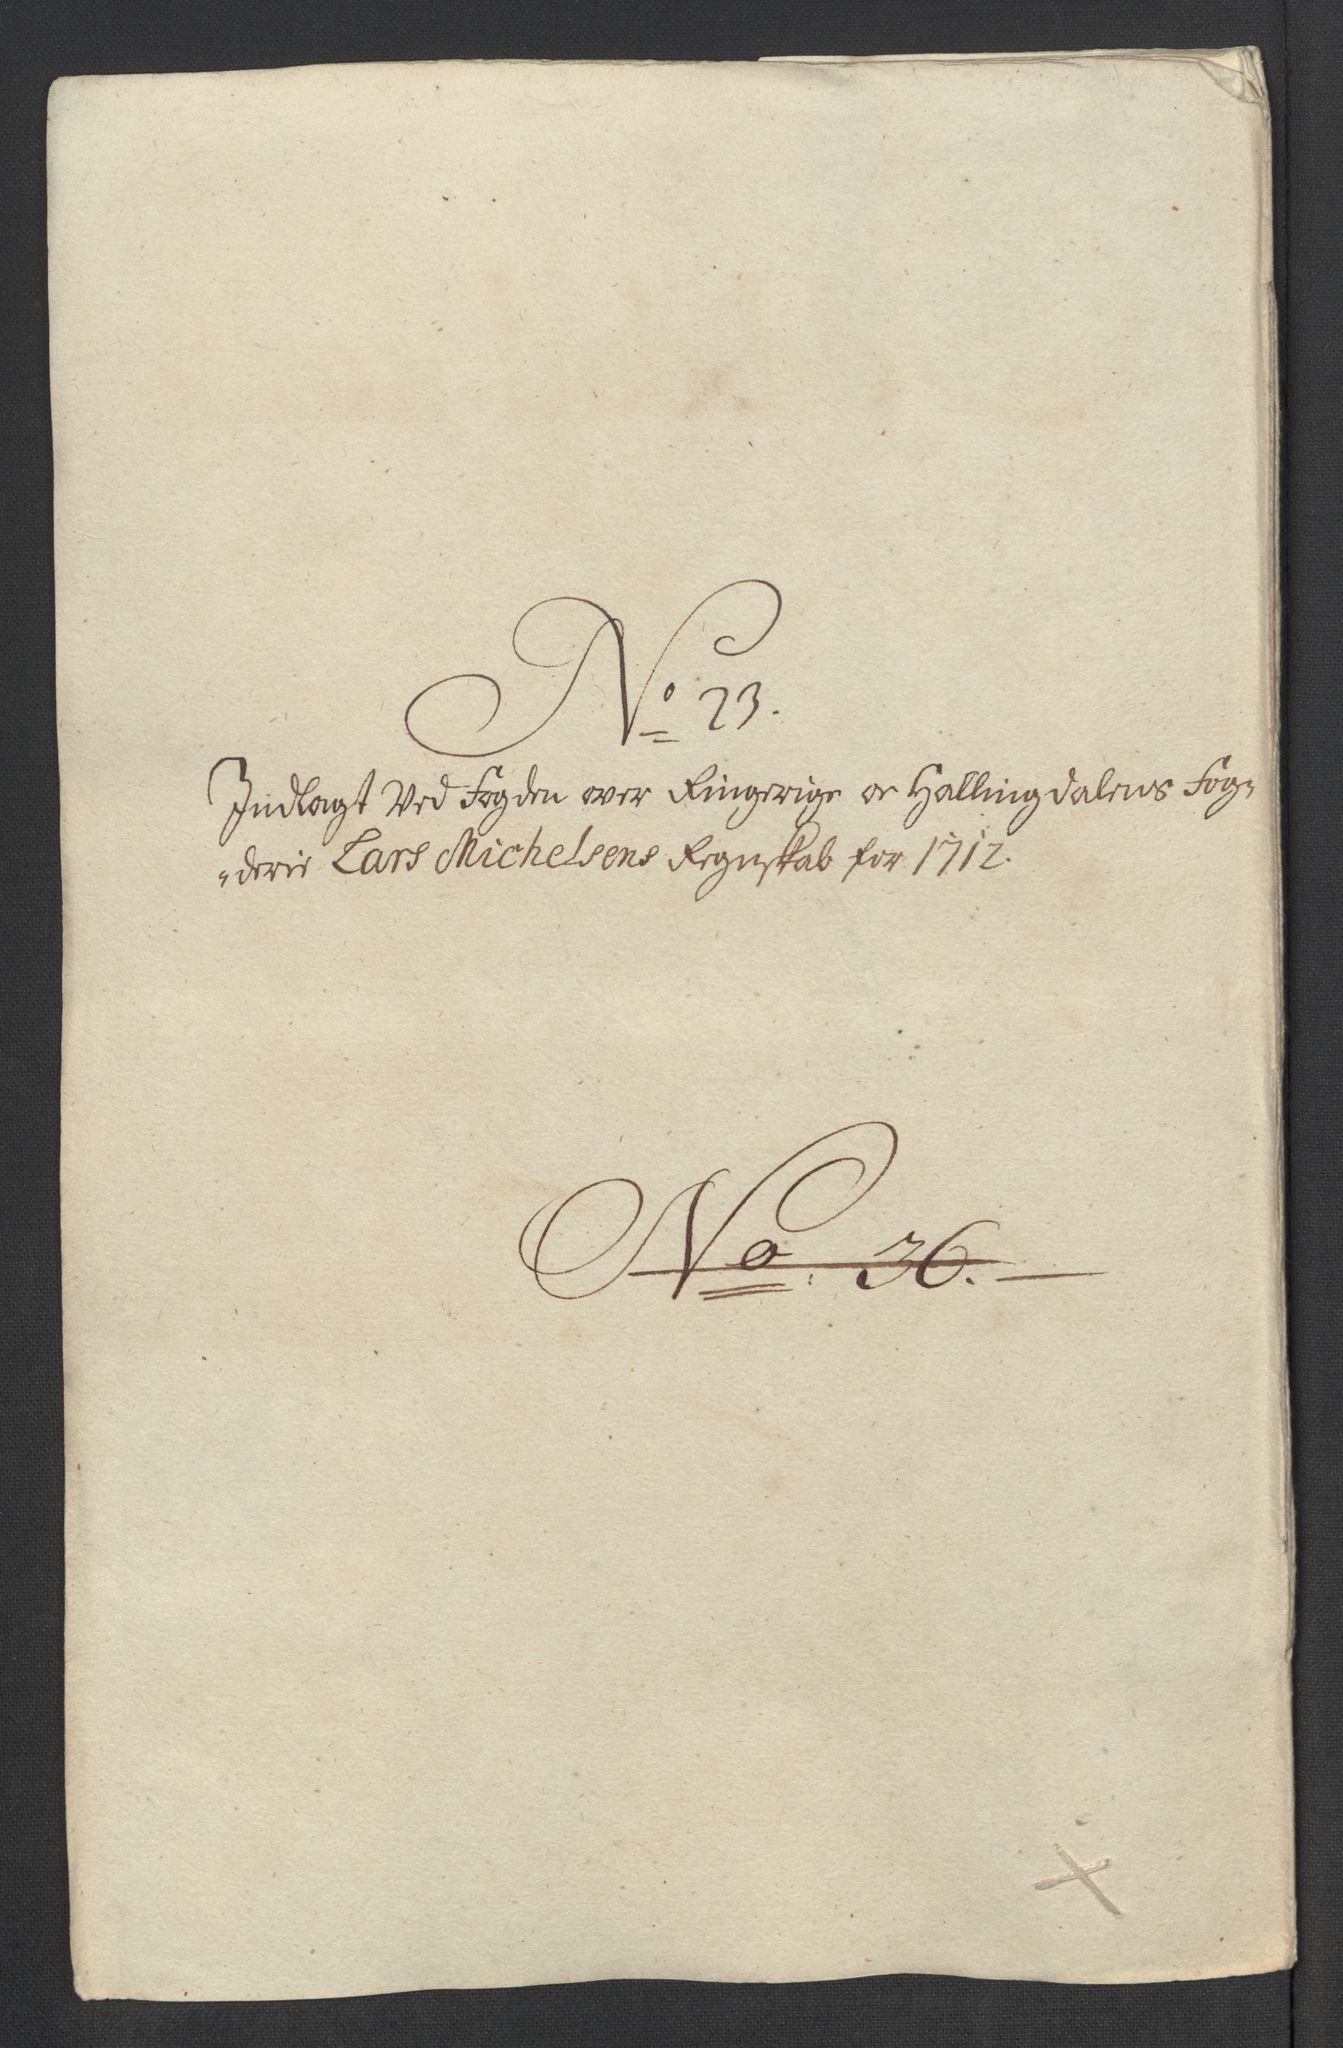 No 23.
Indlagt Ved Fogden over Ringerige oc Hallingdalens Fog=
=derie Lars Michelsens Regnskab for 1712.
No: 36.